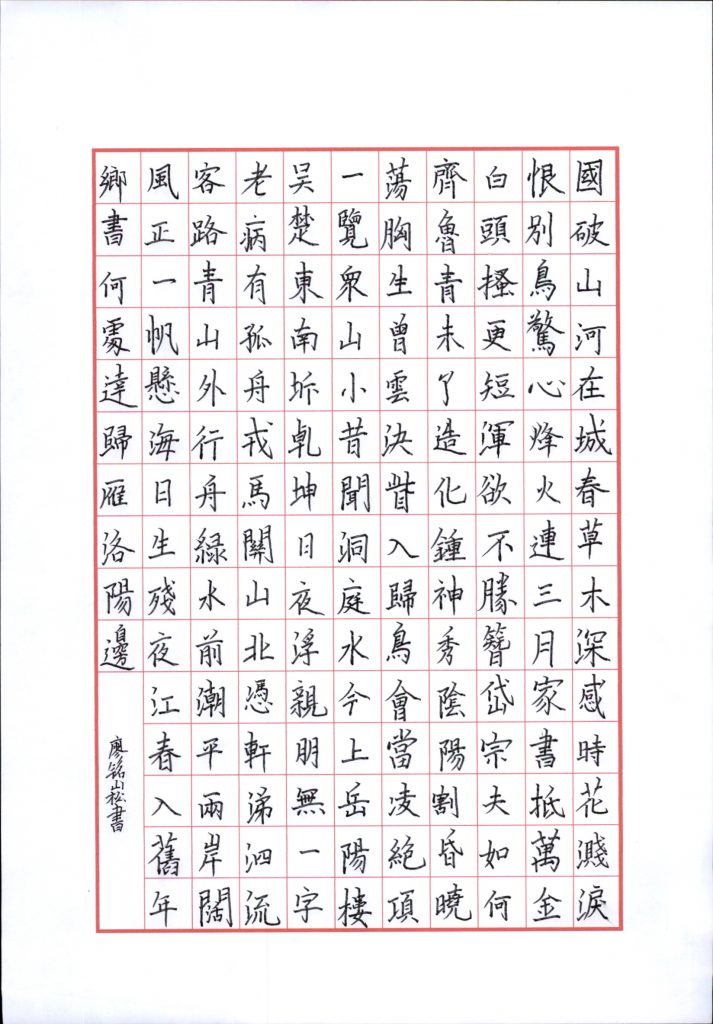 國破山河在城春草木深感時花濺淚
恨別鳥驚心烽火連三月家書抵萬金
白頭搔更短渾欲不勝簪岱宗夫如何
齊魯青未了造化鍾神秀陰陽割昏曉
蕩胸生曾雲決眥入歸鳥會當凌絕項
一覽眾山小昔聞洞庭水今上岳陽樓
吴楚東南坼乹坤日夜浮親朋無一字
老病有孤舟戎馬關山北憑軒涕泗流
客路青山外行舟綠水前潮平兩岸闊
風正一帆懸海日生殘夜江春入舊年
鄉書何處達歸雁洛陽邊
廖銘山松書